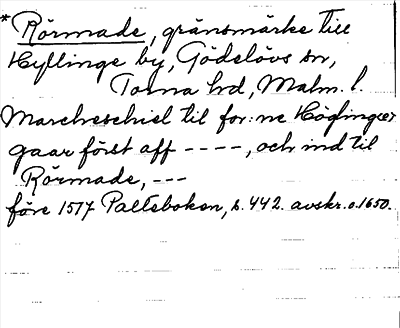 * Rörmade, gränsmärke till
Hyllinge by, Gödelövs sn,
Torna hd, Malm. l.
Marcheschiel til for:ne Höglinger
gaar först aff ----, och ind til
Rörmade, ---
före 1517 Palteboken, s. 442. avskr. o. 1650.